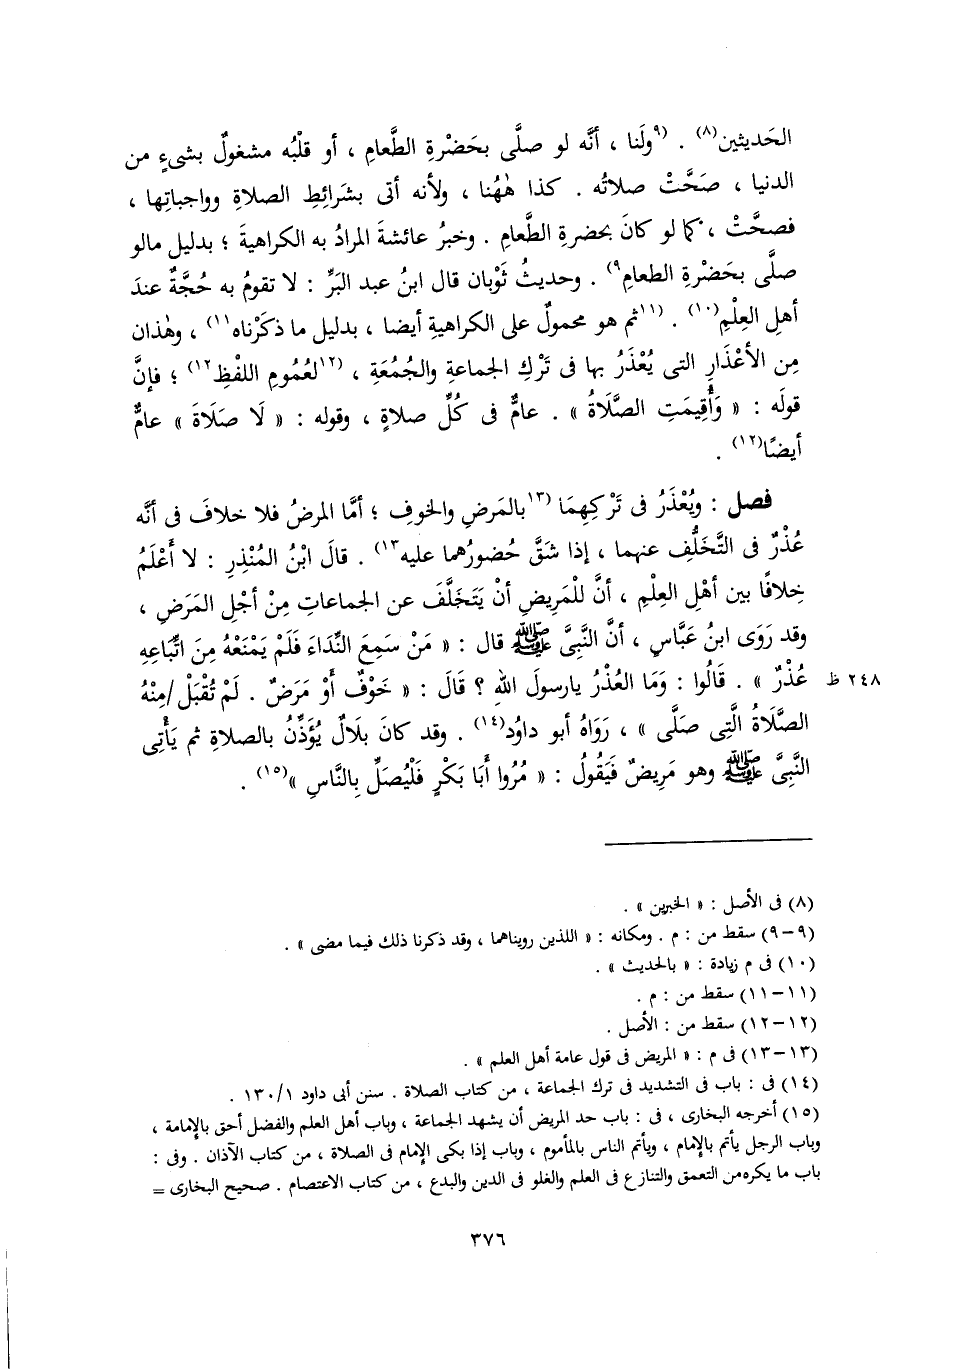 الحَديثين(٨) . (٩ولَنا ، أنَّه لو صلَّى بحَضْرةِ الطَّعامِ ، أو قلْبُه مشغولٌ بشىءٍ من
الدنيا ، صَحَّتْ صلاتُه . كذا هٰهُنا ، ولأنه أتى بشَرائِطِ الصلاةِ وواجباتِها ،
فصحَّتْ ، كما لو كانَ بحضرةِ الطَّعامِ . وخبرُ عائشةَ المرادُ به الكراهيةَ ؛ بدليل مالو
صلَّى بحَضْرةِ الطعامِ٩) . وحديثُ ثَوْبان قال ابنُ عبد البَرِّ : لا تقومُ به حُجَّةٌ عندَ
أهلِ العِلْمِ(١٠) . (١١ثم هو محمولٌ على الكراهيةِ أيضا ، بدليل ما ذكَرْناه١١) ، وهٰذان
مِن الأعْذَارِ التى يُعْذَرُ بها فى تَرْكِ الجماعةِ والجُمُعَةِ ، (١٢لعُمُومِ اللفْظِ١٢) ؛ فإنَّ
قولَه : « وَأُقِيمَتِ الصَّلَاةُ » . عامٌّ فى كُلِّ صلاةٍ ، وقوله : « لَا صَلَاةَ » عامٌّ
أيضًا(١٢) .
فصل : ويُعْذَرُ فى تَرْكِهِمَا (١٣بالمَرضِ والخوفِ ؛ أمَّا المرضُ فلا خلافَ فى أنَّه
عُذْرٌ فى التَّخَلُّفِ عنهما ، إذا شَقَّ حُضورُهما عليه١٣) . قالَ ابْنُ المُنْذِرِ : لا أَعْلَمُ
خِلافًا بين أهْلِ العِلْمِ ، أنَّ للْمَرِيضِ أنْ يَتَخَلَّفَ عن الجماعاتِ مِنْ أجْلِ المَرَضِ ،
وقد رَوَى ابنُ عَبَّاسٍ ، أنَّ النَّبِىَّ ﷺ قال : « مَنْ سَمِعَ النِّدَاءَ فَلَمْ يَمْنَعْهُ مِنَ اتِّبَاعِهِ
عُذْرٌ » . قَالُوا : وَمَا العُذْرُ يارسولَ اللهِ ؟ قَالَ : « خَوْفٌ أَوْ مَرَضٌ . لَمْ تُقْبَلْ /مِنْهُ ٢٤٨ ظ
الصَّلَاةُ الَّتِى صَلَّى » ، رَوَاهُ أبو داوُد(١٤) . وقد كانَ بلَالٌ يُؤَذِّنُ بالصلاةِ ثم يَأْتِى
النَّبِىَّ ﷺ وهو مَرِيضٌ فَيَقُولُ : « مُرُوا أَبَا بَكْرٍ فَلْيُصَلِّ بِالنَّاسِ »(١٥) .
(٨) فى الأصل : « الخبرين » .
(٩-٩) سقط من : م . ومكانه : « اللذين رويناهما ، وقد ذكرنا ذلك فيما مضى » .
(١٠) فى م زيادة : « بالحديث » .
(١١-١١) سقط من : م .
(١٢-١٢) سقط من : الأصل .
(١٣-١٣) فى م : « المريض فى قول عامة أهل العلم » .
(١٤) فى : باب فى التشديد فى ترك الجماعة ، من كتاب الصلاة . سنن أبى داود ١٣٠/١ .
(١٥) أخرجه البخارى ، فى : باب حد المريض أن يشهد الجماعة ، وباب أهل العلم والفضل أحق بالإمامة ،
وباب الرجل يأتم بالإمام ، ويأتم الناس بالمأموم ، وباب إذا بكى الإمام فى الصلاة ، من كتاب الآذان . وفى :
باب ما يكره من التعمق والتنازع فى العلم والغلو فى الدين والبدع ، من كتاب الاعتصام . صحيح البخارى =
٣٧٦